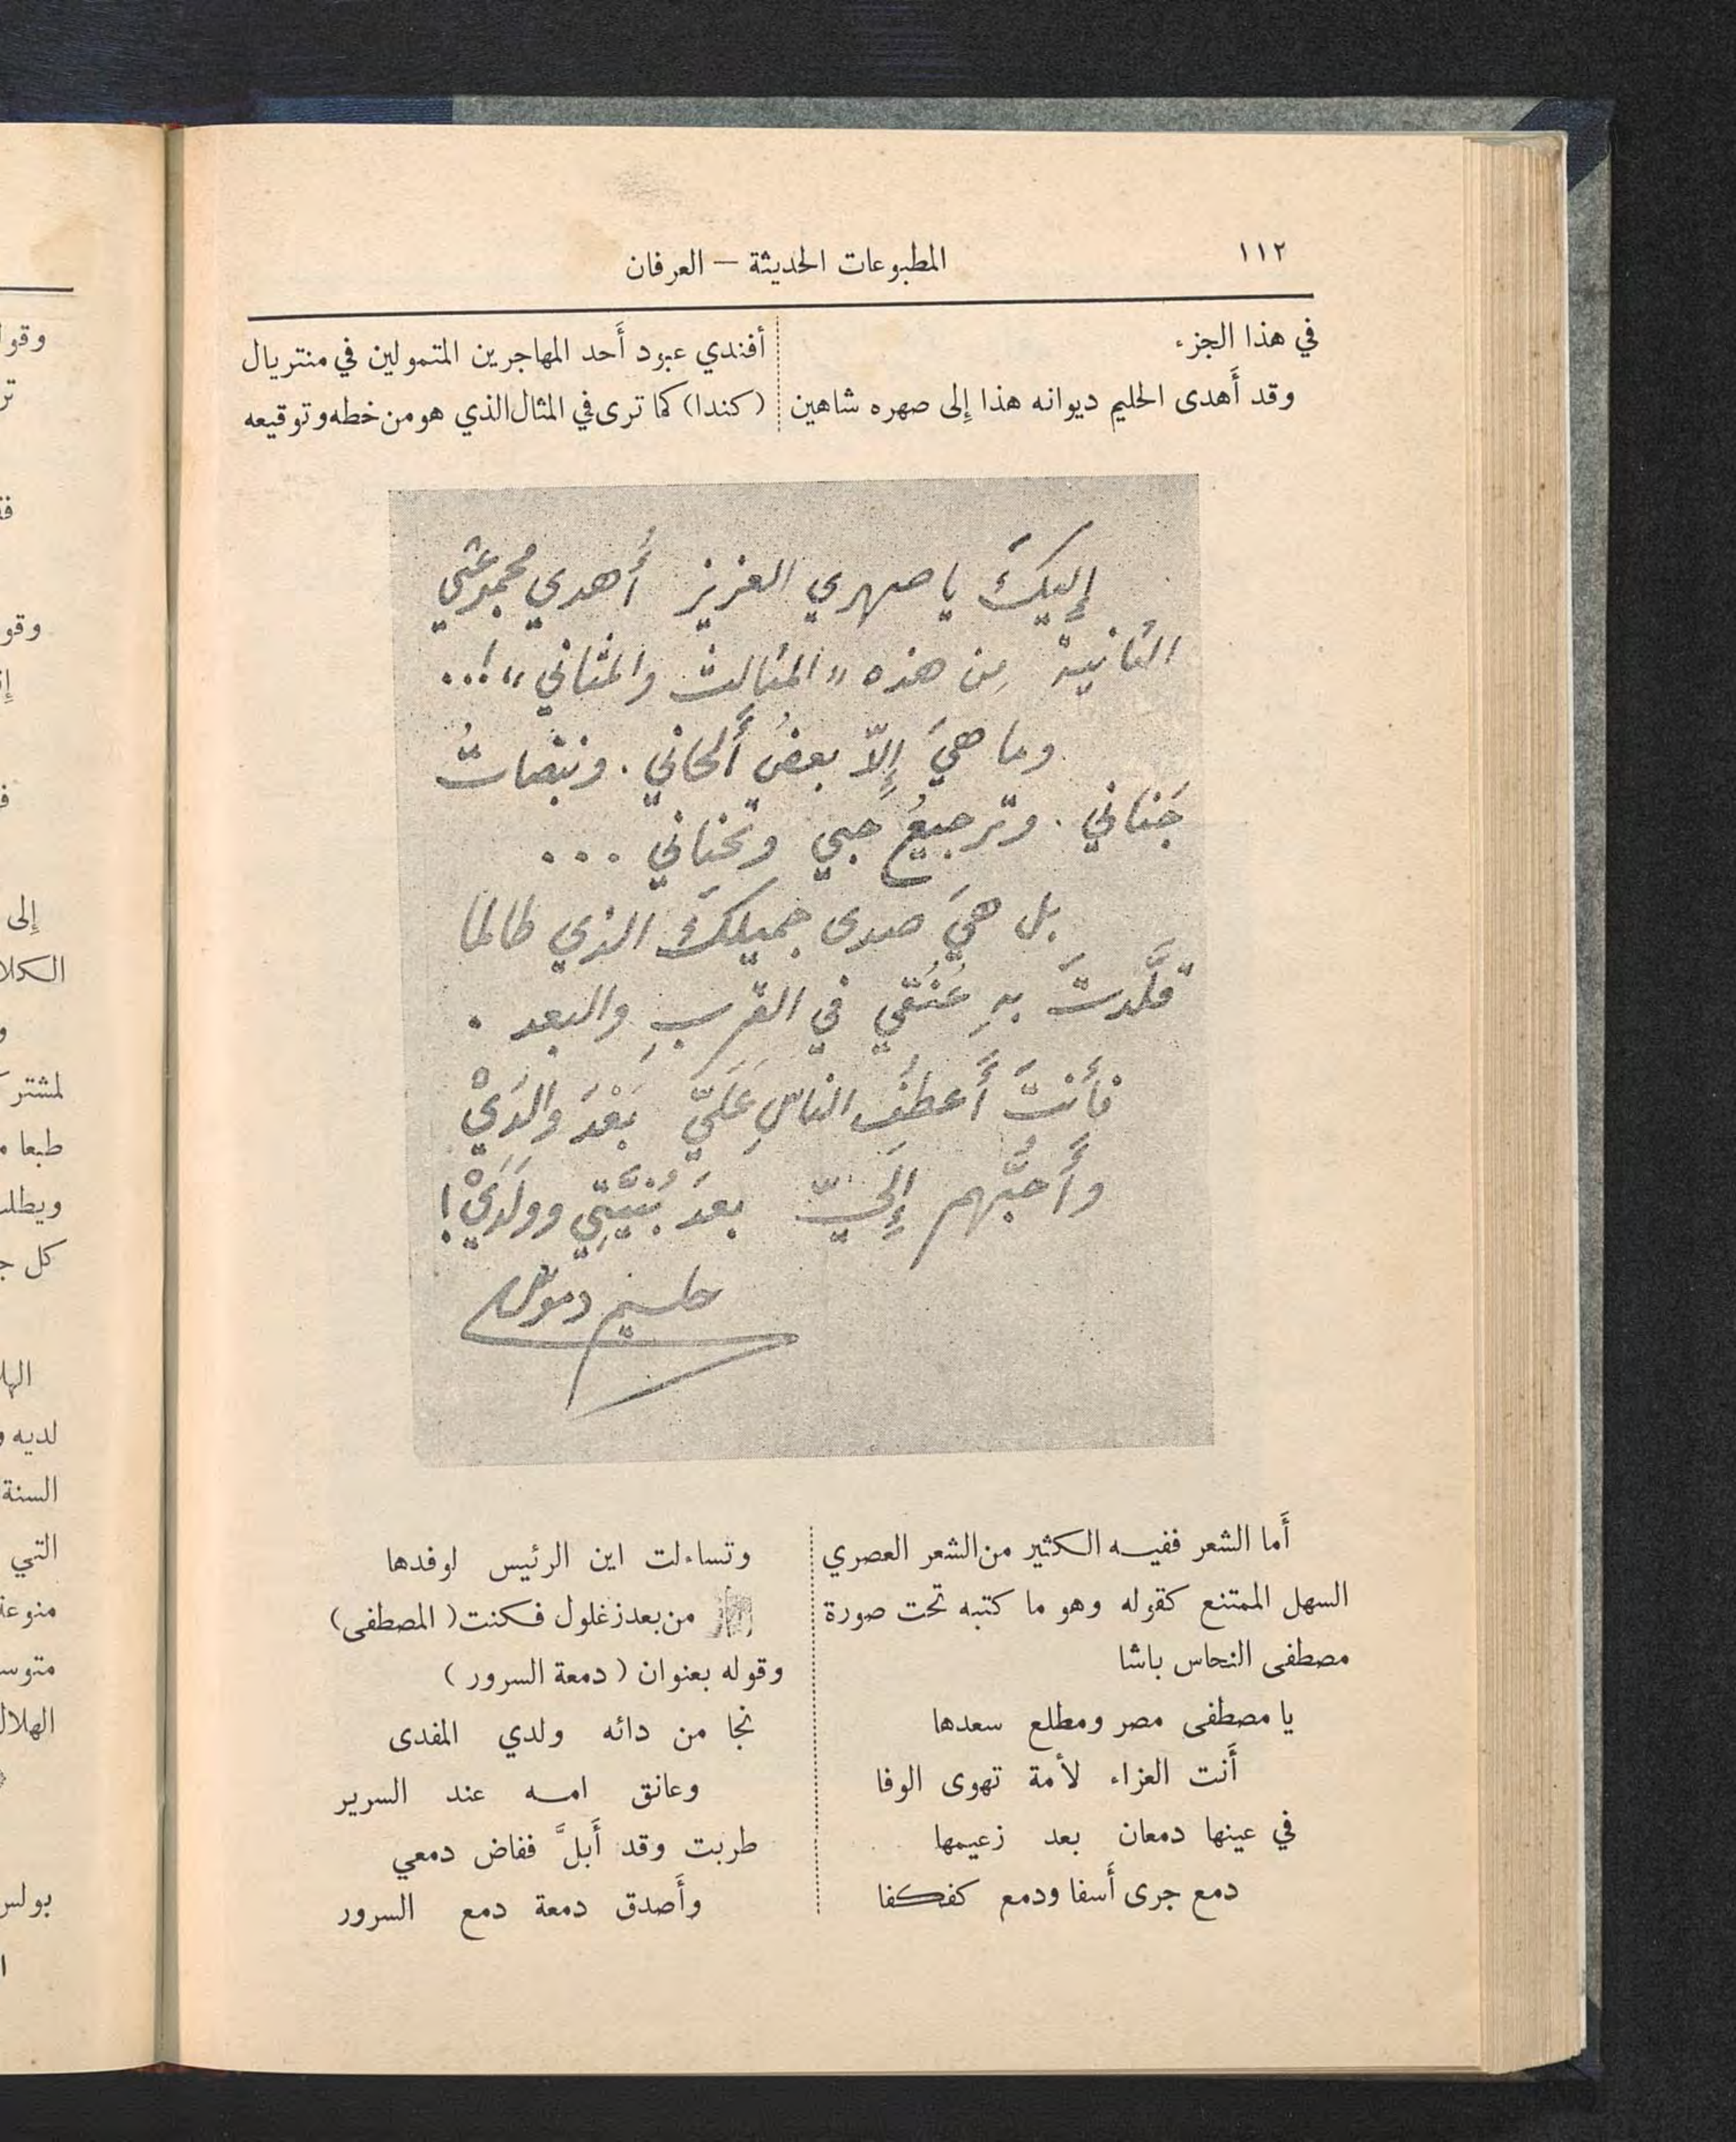 ١١٢
المطبوعات الحديثة — العرفان
في هذا الجزء
وقد أَهدى الحليم ديوانه هذا إلى صهره شاهين
أفندي عبود أَحد المهاجرين المتمولين في منتريال
(كندا) كما ترى في المثال الذي هو من خطه وتوقيعه
إليكَ يا صهري العزيز أُهدي مجموعتي
الثانية مِن هذه «المثالث والمثاني»!...
وما هيَ إلاّ بعضُ أَلحاني . ونبضاتُ
جَناني . وترجيعُ حبي وتَحناني ...
بل هيَ صدى جميلكَ الذي طالما
قلَّدتَ بهِ عُنُقي في القربِ والبعد .
فأَنتَ أَعطفُ الناسِ عَلَيّ بَعْدَ والدَيْ
وأَحبُّهم إلَيّ بعدَ بُنيَّتِي وولَدَيْ !
حليم دموس
أَما الشعر ففيه الكثير من الشعر العصري
السهل الممتنع كقوله وهو ما كتبه تحت صورة
مصطفى النحاس باشا
يا مصطفى مصر ومطلع سعدها
أَنت العزاء لأمة تهوى الوفا
في عينها دمعان بعد زعيمها
دمع جرى أَسفا ودمع كفكفا
وتساءلت اين الرئيس لوفدها
من بعد زغلول فكنت (المصطفى)
وقوله بعنوان (دمعة السرور)
نجا من دائه ولدي المفدى
وعانق امه عند السرير
طربت وقد أَبلَّ ففاض دمعي
وأَصدق دمعة دمع السرور
وقو
إلى
الكلا
لمشتر
طبعا
ويطلب
كل
لديه
السنة
التي
منوعة
متوس
الهلال
بولس